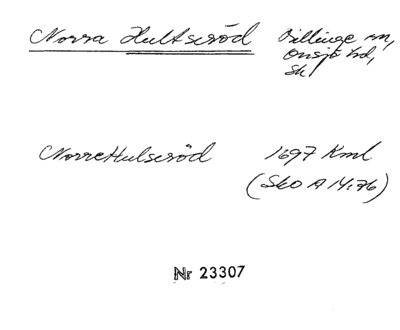 Norra Hultseröd Billinge sn,
Onsjö hd,
Sk.
NorreHulseröd 1697 Kml
(SkO A 14:76)
Nr 23307